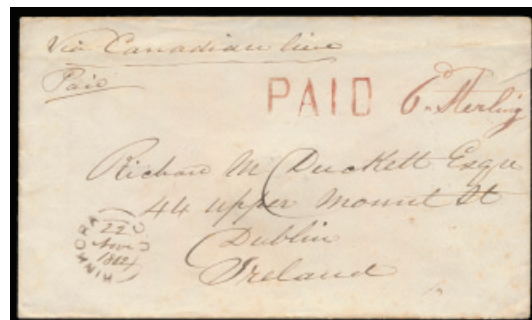 Via Canadian line
Paid
PAID 6 Sterling
Richard M Duckett Esqr
44 Upper Mount St
Dublin
Ireland
22
Nov
1862